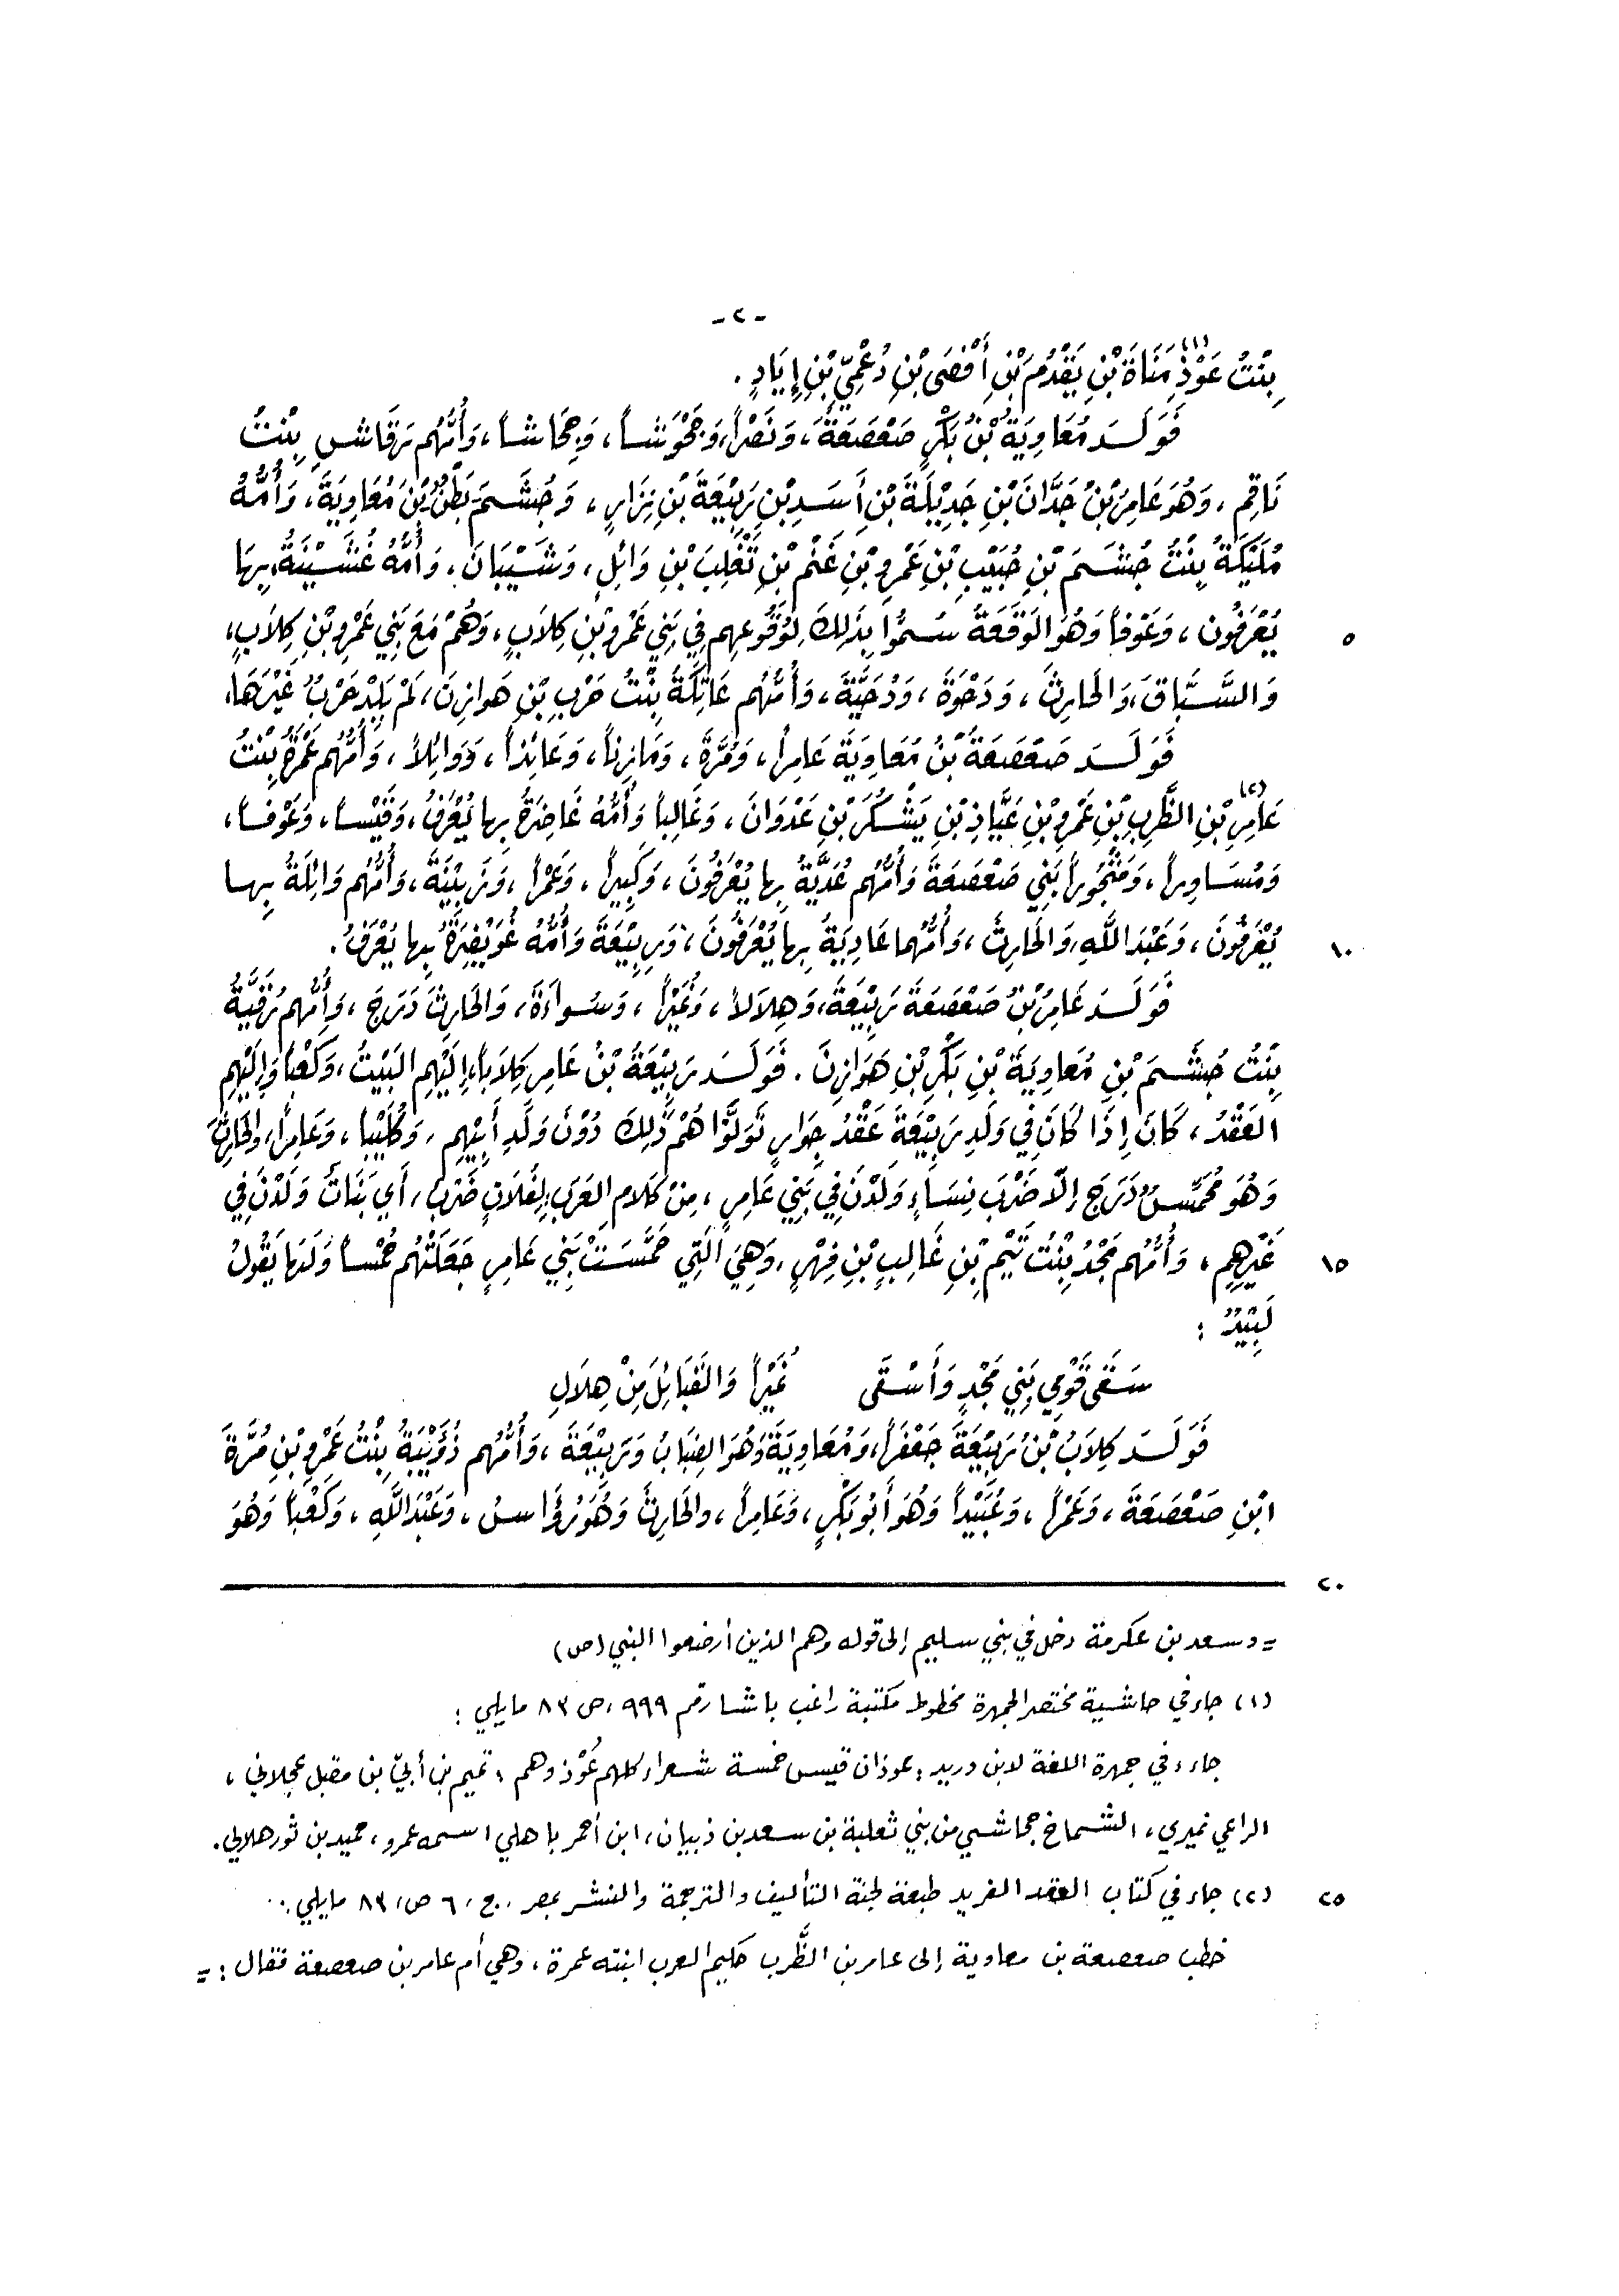 -٢-
بِنْتُ عَوْذِ(١) مَنَاةَ بْنِ يَقْدُمَ بْنِ أَفْصَى بْنِ دُعْمِيِّ بْنِ إِيَادٍ .
فَوَلَدَ مُعَاوِيَةُ بْنُ بَكْرٍ صَعْصَعَةَ ، وَنَصْراً ، وَجَحْوَشاً ، وَجِحَاشاً ، وَأُمُّهُم رَقَاشِ بِنْتُ
نَاقِمِ ، وَهُوَ عَامِرُ بْنُ جَدَّانَ بْنِ جَدِيْلَةَ بْنِ أَسَدِ بْنِ رَبِيْعَةَ بْنِ نِزَارٍ ، وَجُشَمَ بَطْنٌ بْنَ مُعَاوِيَةَ ، وَأُمُّهُ
مُلَيْكَةُ بِنْتُ جُشَمَ بْنِ حُبَيْبِ بْنِ عَمْرِو بْنِ غَنْمِ بْنِ تَغْلِبَ بْنِ وَائِلٍ ، وَشَيْبَانَ ، وَأُمُّهُ غُشَيْنَةُ ، بِهَا
يُعْرَفُون ، وَعَوْفاً وَهُوَ الوَقَعَةُ سُمُّوا بِذَلِكَ لِوُقُوعِهِم فِي بَنِي عَمْرِو بْنِ كِلَابٍ ، وَهُمْ مَعَ بَنِي عَمْرِو بْنِ كِلَابٍ ، ٥
وَالسَّبَّاقَ ، وَالحَارِثَ ، وَدَحْوَةَ ، وَدُحَيَّةَ ، وَأُمُّهُم عَاتِكَةُ بِنْتُ حَرْبِ بْنِ هَوازِنَ ، لَمْ يَلِدْ حَرْبٌ غَيْرَهَا .
فَوَلَدَ صَعْصَعَةُ بْنُ مُعَاوِيَةَ عَامِراً ، وَمُرَّةَ ، وَمَازِناً ، وَعَائِذاً ، وَوَائِلاً ، وَأُمُّهُم عَمْرَةُ بِنْتُ
عَامِرِ(٢) بْنِ الظَّرِبِ بْنِ عَمْرِو بْنِ عَيَّاذِ بْنِ يَشْكُرَ بْنِ عَدْوَانَ ، وَغَالِباً وَأُمُّهُ غَاضِرَةُ بِها يُعْرَفُ ، وَقَيْساً ، وَعَوْفاً ،
وَمُسَاوِراً ، وَمَنْجُوراً بَنِي صَعْصَعَةَ وَأُمُّهُم عُدَيَّةُ بِها يُعْرَفُونَ ، وَكَبِيراً ، وَعَمْراً ، وَزَبِيْنَةَ ، وَأُمُّهُم وَائِلَةُ بِها
يُعْرَفُونَ ، وَعَبْدَ اللَّهِ ، وَالحَارِثَ ، وَأُمُّهُما عَادِيَةُ بِها يُعْرَفُونَ ، وَرَبِيْعَةَ وَأُمُّهُ غُوَيْضِرَةُ بِها يُعْرَفُ . ١٠
فَوَلَدَ عَامِرُ بْنُ صَعْصَعَةَ رَبِيْعَةَ ، وَهِلَالاً ، وَنُمَيْراً ، وَسُواءَةَ ، وَالحَارِثَ دَرَجَ ، وَأُمُّهُم رُقَيَّةُ
بِنْتُ جُشَمَ بْنِ مُعَاوِيَةَ بْنِ بَكْرِ بْنِ هَوَازِنَ . فَوَلَدَ رَبِيْعَةُ بْنُ عَامِرٍ كِلَاباً ، إِلَيْهِم البَيْتُ ، وَكَعْباً وَإِلَيْهِم
العَقْدُ ، كَانَ إِذَا كَانَ فِي وَلَدِ رَبِيْعَةَ عَقْدُ جِوَارٍ تَوَلَّوْا هُمْ ذَلِكَ دُوْنَ وَلَدِ أَبِيْهِم ، وَكُلَيْباً ، وَعَامِراً ، وَالحَارِثَ
وَهُوَ مُخَمَّسٌ دَرَجَ إِلاّ ضَرْبَ نِسَاءٍ وَلَدْنَ فِي بَنِي عَامِرٍ ، مِنْ كَلَامِ العَرَبِ لِفُلَانٍ ضَرْبٌ ، أَي بَنَاتٌ وَلَدْنَ فِي
غَيْرِهِم ، وَأُمُّهُم مَجْدُ بِنْتُ تَيْمِ بْنِ غَالِبِ بْنِ فِهْرٍ ، وَهِيَ الَّتِي حَمَّسَتْ بَنِي عَامِرٍ جَعَلَتْهُم حُمْساً وَلَهَا يَقُولُ ١٥
لَبِيْدٌ :
سَقَى قَوْمِي بَنِي مَجْدٍ وَأَسْقَى نُمَيْراً وَالقَبَائِلَ مِنْ هِلَالِ
فَوَلَدَ كِلَابُ بْنُ رَبِيْعَةَ جَعْفَراً ، وَمُعَاوِيَةَ وَهُوَ الضِبَابُ وَرَبِيْعَةَ ، وَأُمُّهُم ذُؤَيْبَةُ بِنْتُ عَمْرِو بْنِ مُرَّةَ
ابْنِ صَعْصَعَةَ ، وَعَمْراً ، وَعُبَيْداً وَهُوَ أَبُو بَكْرٍ ، وَعَامِراً ، والحَارِثَ وَهُوَ رُؤَاسُ ، وَعَبْدَ اللَّهِ ، وَكَعْباً وَهُوَ
٢٠
= وسعد بن عكرمة دخل في بني سليم إلى قوله وهم الذين أرضعوا النبي (ص)
(١) جاء في حاشية مختصر الجمهرة مخطوط مكتبة راغب باشا رقم ٩٩٩ ، ص ٨٣ مايلي :
جاء في جمهرة اللغة لابن دريد : عوذان قيس خمسة شعراء كلهم عُوْذ وهم : تميم بن أبيّ بن مقبل عجلاني ،
الراعي نميري ، الشماخ جحاشي من بني ثعلبة بن سعد بن ذبيان ، ابن أحمر باهلي اسمه عمرو ، حميد بن ثور هلالي .
(٢) جاء في كتاب العقد الفريد طبعة لجنة التأليف والترجمة والنشر بمصر . ج ، ٦ ص ، ٨٣ مايلي : ٢٥
خطب صعصعة بن معاوية إلى عامر بن الظَّرِب حكيم العرب ابنته عمرة ، وهي أم عامر بن صعصعة فقال : =